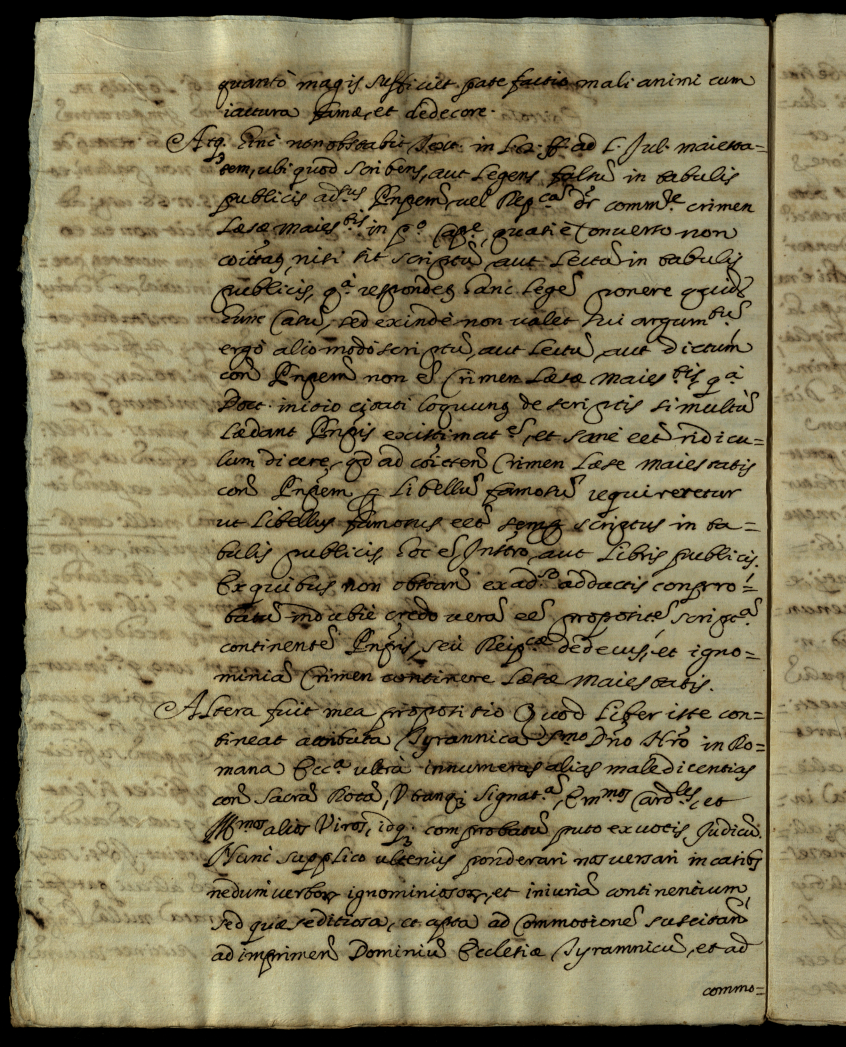 quantò magis sufficiet patefactio mali animi cum
iactura famæ, et dedecore.
Atq. hinc non obstabit Text. in L. 2. ff. ad L. Jul. maiesta=
tem, ubi quòd scribens, aut Legens falsũ in tabulis
publicis adsus Pnpem, uel Repcam dr commre crimen
Læsæ maiestis in po cape, quasi è Conuerso non
nisi sit scriptũ, aut Lectũ in tabulis
publicis, qa respondet hanc Legẽ ponere quidẽ
hunc Casũ, sed exindè non ualet sui argumtũ
ergò alio modo scriptũ, aut Lectũ, aut dictum
con Pnpem non ẽ Crimen Læsæ Maiestis, qa
Doct. initio citati loquunt de scriptis simul
Lædant Pnpis existimates, et sanè eet ridicu=
lum dicere, qd ad Crimen Læse maiestatis
con Pnpem p Libellũ famosũ requireretur
ut Libellus famosus eet semp scriptus in ta=
bulis publicis, hoc ẽ Instro, aut Libris publicis.
Ex quibus non obstan ex adso adductis conpro=
batũ indubiè credo uerũ eẽ proposite script
continentẽ Pnpis, seù Reipcæ dedecus, et igno=
miniã Crimen continere Læsæ Maiestatis.
Altera fuit mea propositio Quòd Liber iste con=
tineat attributa Tyrannica Smo Dño Nro in Ro=
mana Ecca ultrà innumeras alias maledicentias
con Sacrã Rotã, Utramq; Signatã, Emmos Cardles, et
Illmos alios Viros, idq; comprobatũ puto ex uotis Judicũ.
Nunc supplico ulterius ponderari nos uersari in casibs
nedum uerbor ignominiosor, et iniuriã continentium
sed quæ seditiosa, et apta ad Commotionẽ suscitan
ad imprimen Dominiũ Ecclesiæ Tyramnicũ, et ad
commo=